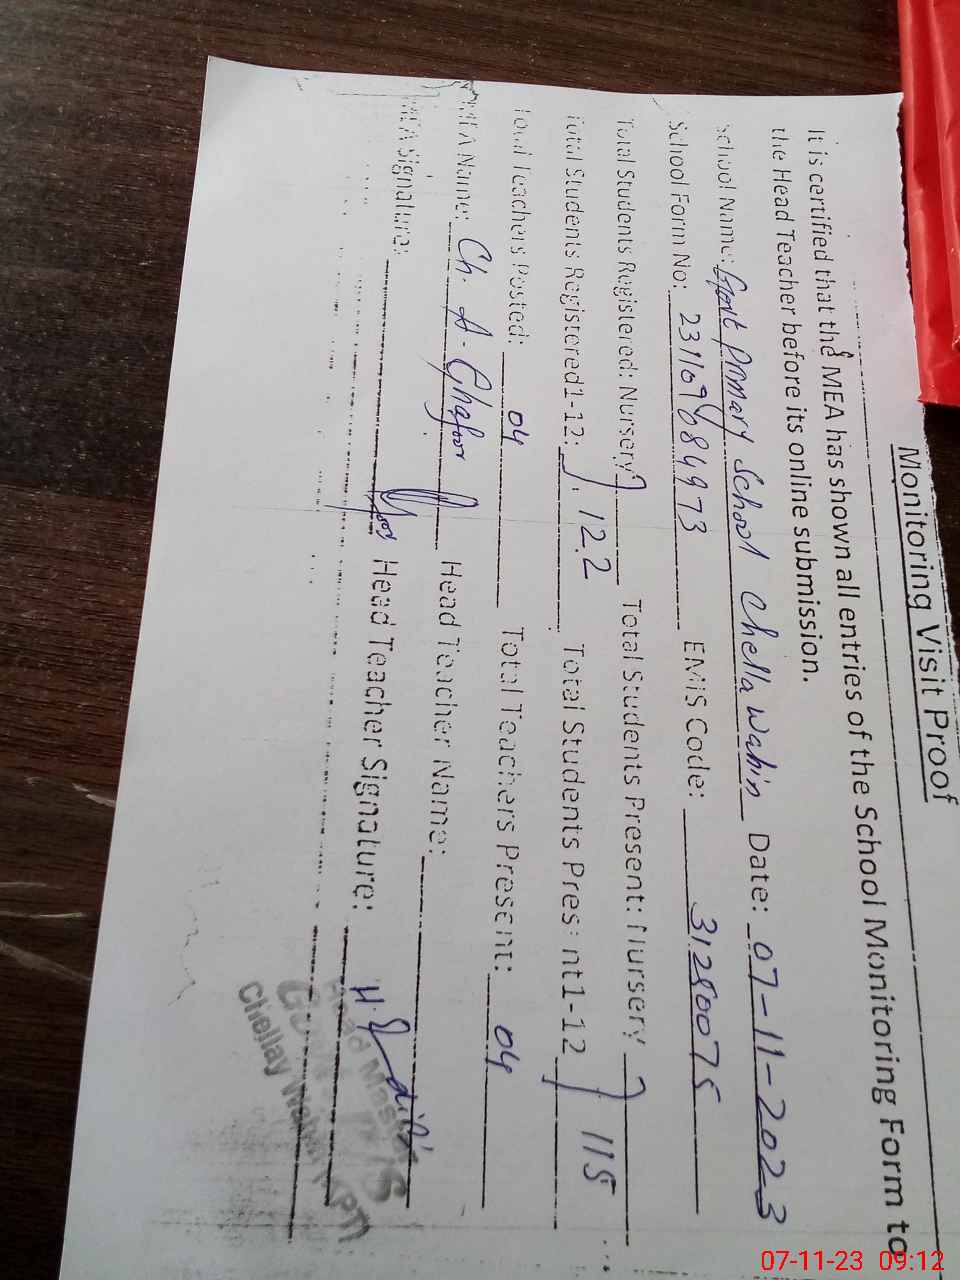 Monitoring Visit Proof
It is certified that the MEA has shown all entries of the School Monitoring Form to
the Head Teacher before its online submission.
School Name: Govt Primary School Chella Wahin Date: 07-11-2023
School Form No: 231109684973 EMIS Code: 31280075
Total Students Registered: Nursery Total Students Present: Nursery
Total Students Registered1-12: 122 Total Students Present1-12 115
Total Teachers Posted: 04 Total Teachers Present: 04
MEA Name: Ch. A. Ghafoor Head Teacher Name:
MEA Signature: Head Teacher Signature:
Head Master
Chellay Wahin
07-11-23 09:12